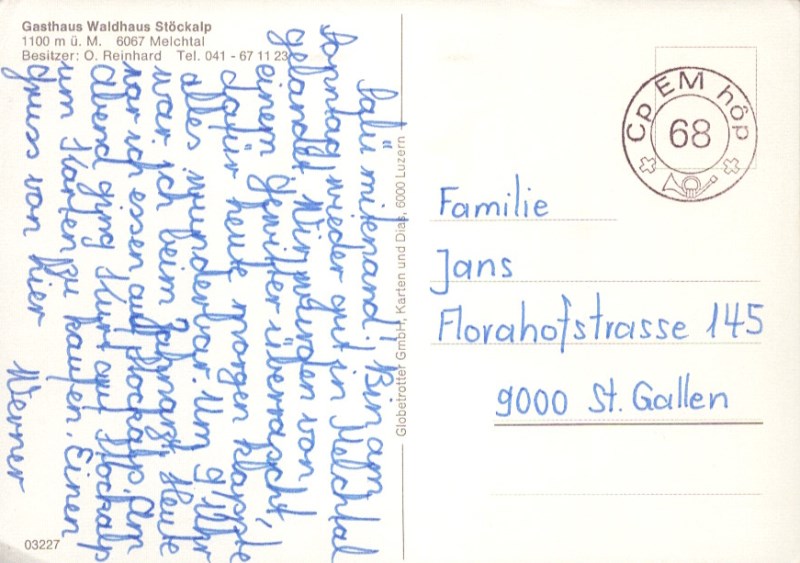 Gasthaus Waldhaus Stöckalp
1100 m ü. M. 6067 Melchtal
Besitzer: O. Reinhard Tel. 041 - 67 11 23
Salü mitenand! Bin am
Sonntag wieder gut in Melchtal
gelandet. Wir wurden von
einem Gewitter überrascht,
dafür heute morgen klappte
alles wunderbar. Um 9 Uhr
war ich beim Zahnarzt. Heute
war ich essen auf Stockalp. Am
Abend ging Kurt auf Stockalp
um Karten zu kaufen. Einen
Gruss von hier
Werner
03227
Globetrotter GmbH, Karten und Dias, 6000 Luzern
Cp EM hôp
68
Familie
Jans
Florahofstrasse 145
9000 St. Gallen